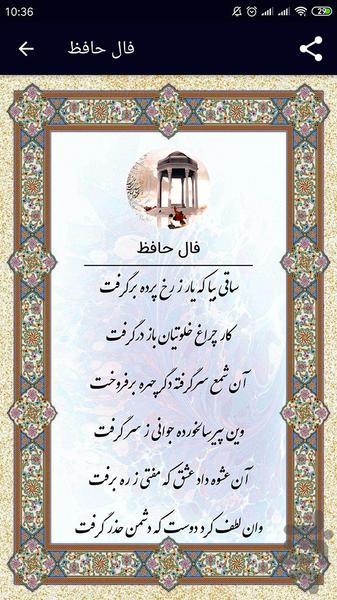 10:36
29
فال حافظ
فال حافظ
ساقی بیا که یار ز رخ پرده برگرفت
کار چراغ خلوتیان باز درگرفت
آن شمع سرگرفته دگر چهره برفروخت
وین پیر سالخورده جوانی ز سر گرفت
آن عشوه داد عشق که مفتی ز ره برفت
وان لطف کرد دوست که دشمن حذر گرفت